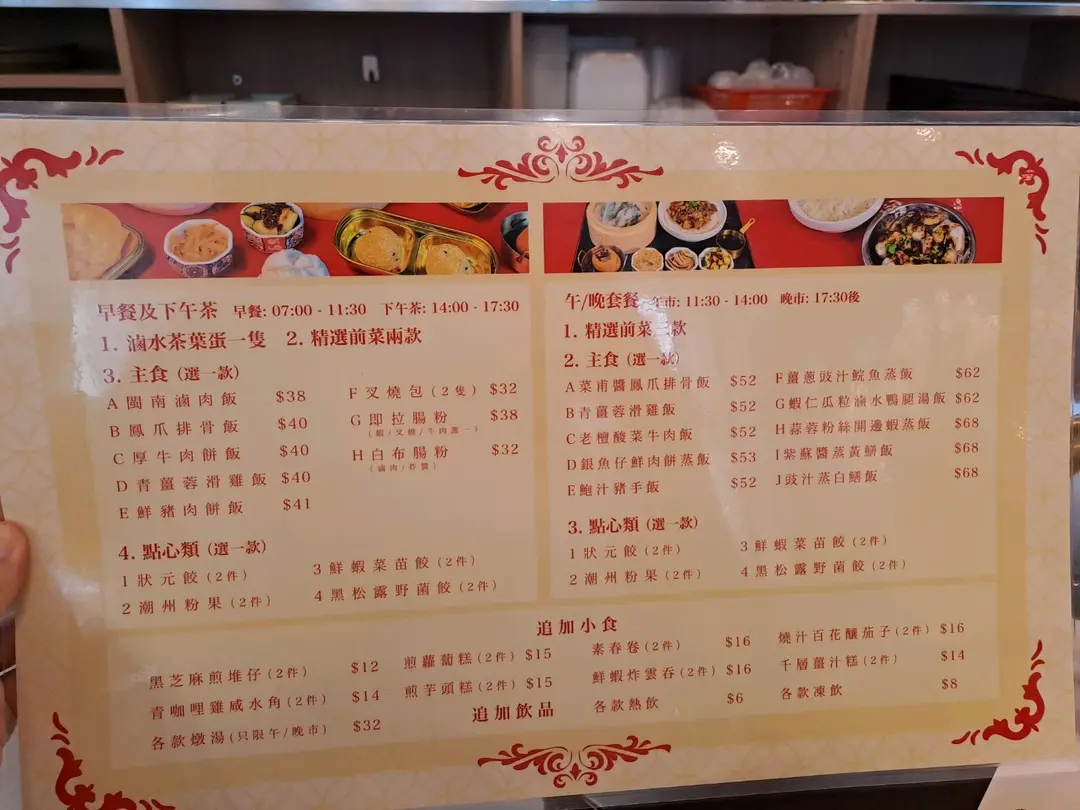 早餐及下午茶 早餐: 07:00 - 11:30 下午茶: 14:00 - 17:30
1. 滷水茶葉蛋一隻 2. 精選前菜兩款
3. 主食 (選一款)
A 閩南滷肉飯 $38
B 鳳爪排骨飯 $40
C 厚牛肉餅飯 $40
D 青薑蓉滑雞飯 $40
E 鮮豬肉餅飯 $41
F 叉燒包 (2隻) $32
G 即拉腸粉 $38
(蝦/叉燒/牛肉選一)
H 白布腸粉 $32
(滷肉/炸醬)
4. 點心類 (選一款)
1 狀元餃 (2件)
2 潮州粉果 (2件)
3 鮮蝦菜苗餃 (2件)
4 黑松露野菌餃 (2件)
午/晚套餐 午市: 11:30 - 14:00 晚市: 17:30後
1. 精選前菜三款
2. 主食 (選一款)
A 菜甫醬鳳爪排骨飯 $52
B 青薑蓉滑雞飯 $52
C 老檀酸菜牛肉飯 $52
D 銀魚仔鮮肉餅蒸飯 $53
E 鮑汁豬手飯 $52
F 薑蔥豉汁鯇魚蒸飯 $62
G 蝦仁瓜粒滷水鴨腿湯飯 $62
H 蒜蓉粉絲開邊蝦蒸飯 $68
I 紫蘇醬蒸黃鱔飯 $68
J 豉汁蒸白鱔飯 $68
3. 點心類 (選一款)
1 狀元餃 (2件)
2 潮州粉果 (2件)
3 鮮蝦菜苗餃 (2件)
4 黑松露野菌餃 (2件)
追加小食
黑芝麻煎堆仔 (2件) $12
青咖哩雞咸水角 (2件) $14
各款燉湯 (只限午/晚市) $32
煎蘿蔔糕 (2件) $15
煎芋頭糕 (2件) $15
素春卷 (2件) $16
鮮蝦炸雲吞 (2件) $16
燒汁百花釀茄子 (2件) $16
千層薑汁糕 (2件) $14
追加飲品
各款熱飲 $6
各款凍飲 $8